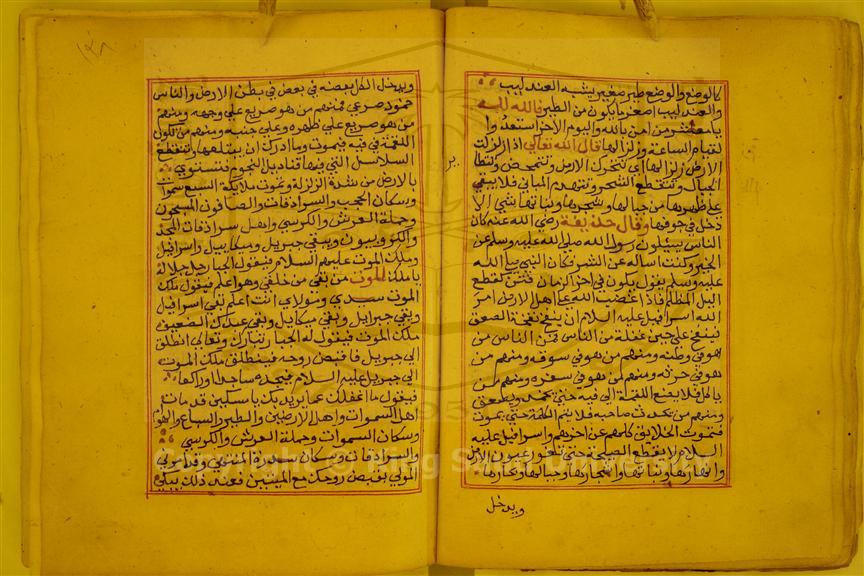 كالوضع والوضع طير صغير يشبه العندليب
والعندليب اصغر ما يكون من الطير فالله الله
يا معشر من امن بالله واليوم الاخر استعدوا
لقيام الساعة وزلزالها قال الله تعالى اذا زلزلت
الارض زلزالها اي تتحرك الارض وتتمحض
الجبال وتنقطع الشجر وتنهدم المباني فلا يبقى
على ظهرها من جبالها وشجرها ونباتها شي الا
دخل في جوفها وقال حذيفة رضي الله عنه كان
الناس يسئلون رسول الله صلى الله عليه وسلم عن
الخير وكنت اساله عن الشر فكان النبي صلى الله
عليه وسلم يقول يكون في اخر الزمان فتن كقطع
اليل المظلم فاذا غضب الله على اهل الارض امر
الله اسرافيل عليه السلام ان ينفخ نفخة الصعق
فينفخ على حين غفلة من الناس فمن الناس من
هو في وطنه ومنهم من هو في سوقه ومنهم من
هو في حرثه ومنهم من هو في سفره ومنهم من
ياكل فلا يضع اللقمة الى فيه حتى
ومنهم من يحدث صاحبه فلا يتم الكلمة حتى يموت
فتموت الخلايق كلهم عن اخرهم واسرافيل عليه
السلام لا يقطع الصيحة حتى تغور عيون الارض
وانهارها ونباتها واشجارها وجبالها وبحارها
ويدخل
١٣٨
ويدخل الكل بعضه في بعض في بطن الارض والناس
خمود صرعى فمنهم من هو صريع على وجهه ومنهم
من هو صريع على ظهره وعلى جنبه ومنهم من تكون
اللقمة في فيه فيموت وما ادرك ان يبتلعها وتنقطع
السلاسل التي فيها قناديل النجوم فتستوي
بالارض من شدة الزلزلة وتموت ملايكة السبع سموات
وسكان الحجب والسرادقات والصافون المسبحون
وحملة العرش والكرسي واهل سرادقات المجد
والكروبيون ويبقى جبريل وميكاييل واسرافيل
وملك الموت عليهم السلام فيقول الجبار جل جلاله
يا ملك الموت من بقي من خلقي وهو اعلم فيقول ملك
الموت سيدي ومولاي انت اعلم بقي اسرافيل
وبقي جبرايل وبقي ميكايل وبقي عبدك الضعيف
ملك الموت فيقول له الجبار تبارك وتعالى انطلق
الى جبريل فاقبض روحه فينطلق ملك الموت
الى جبريل عليه السلام فيجده ساجدا وراكعا
فيقول ما اغفلك عما يراد بك يا مسكين قد مات
اهل السموات واهل الارضين والطير والسباع والهوام
وسكان السموات وحملة العرش والكرسي
والسرادقات وسكان سدرة المنتهى وقد امرني
المولى بقبض روحك مع الميتين فعند ذلك يبكي
Copyright © King Saud University